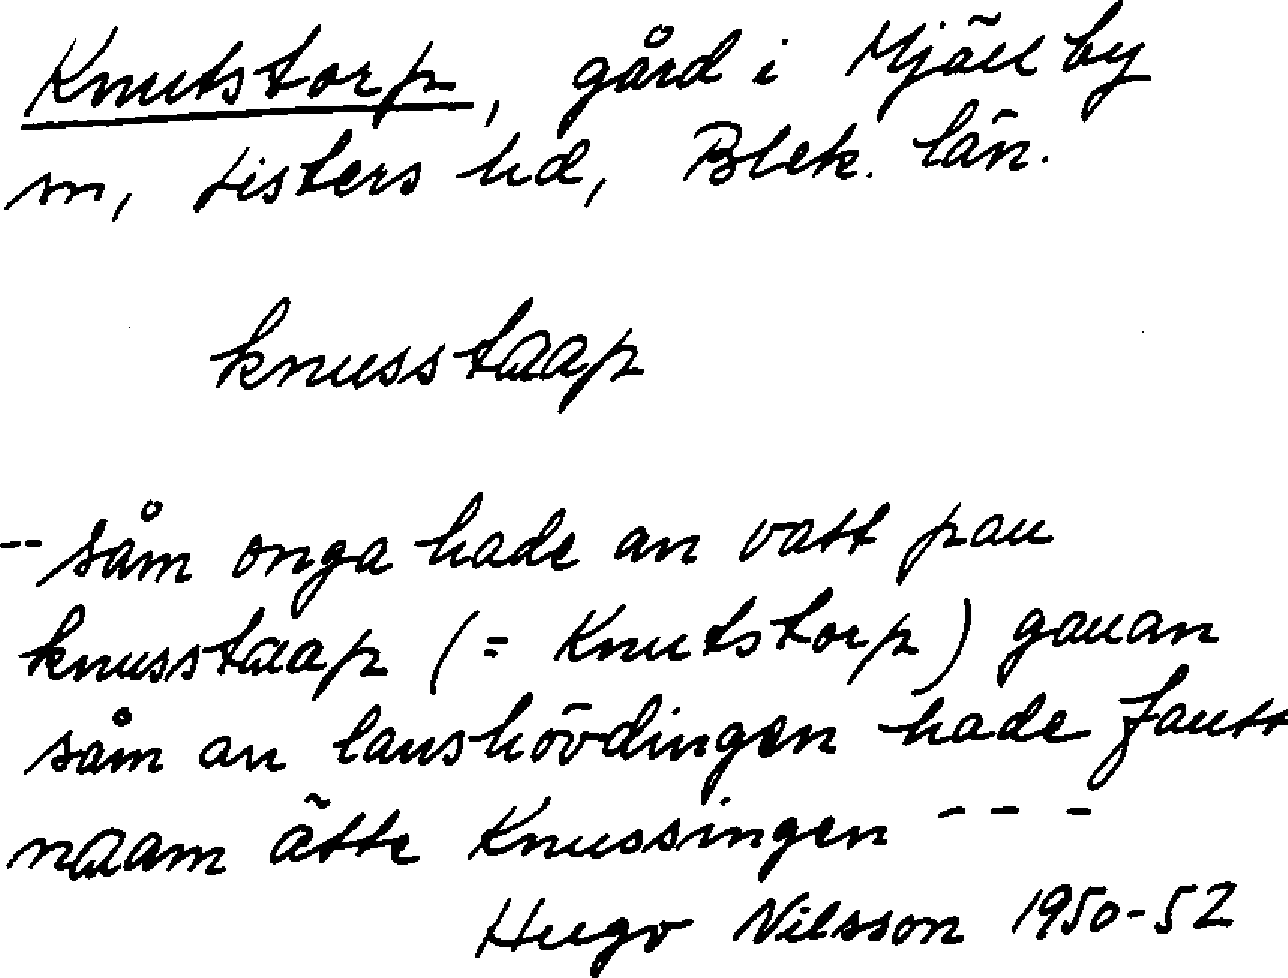 Knutstorp, gård i Mjällby
sn, Listers hd, Blek. län.
knusstaap
-- såm onga hade an vatt pau
knusstaap (= Knutstorp) gauan
såm an lanshövdingen hade fautt
naam ätte Knussingen - - -
Hugo Nilsson 1950-52